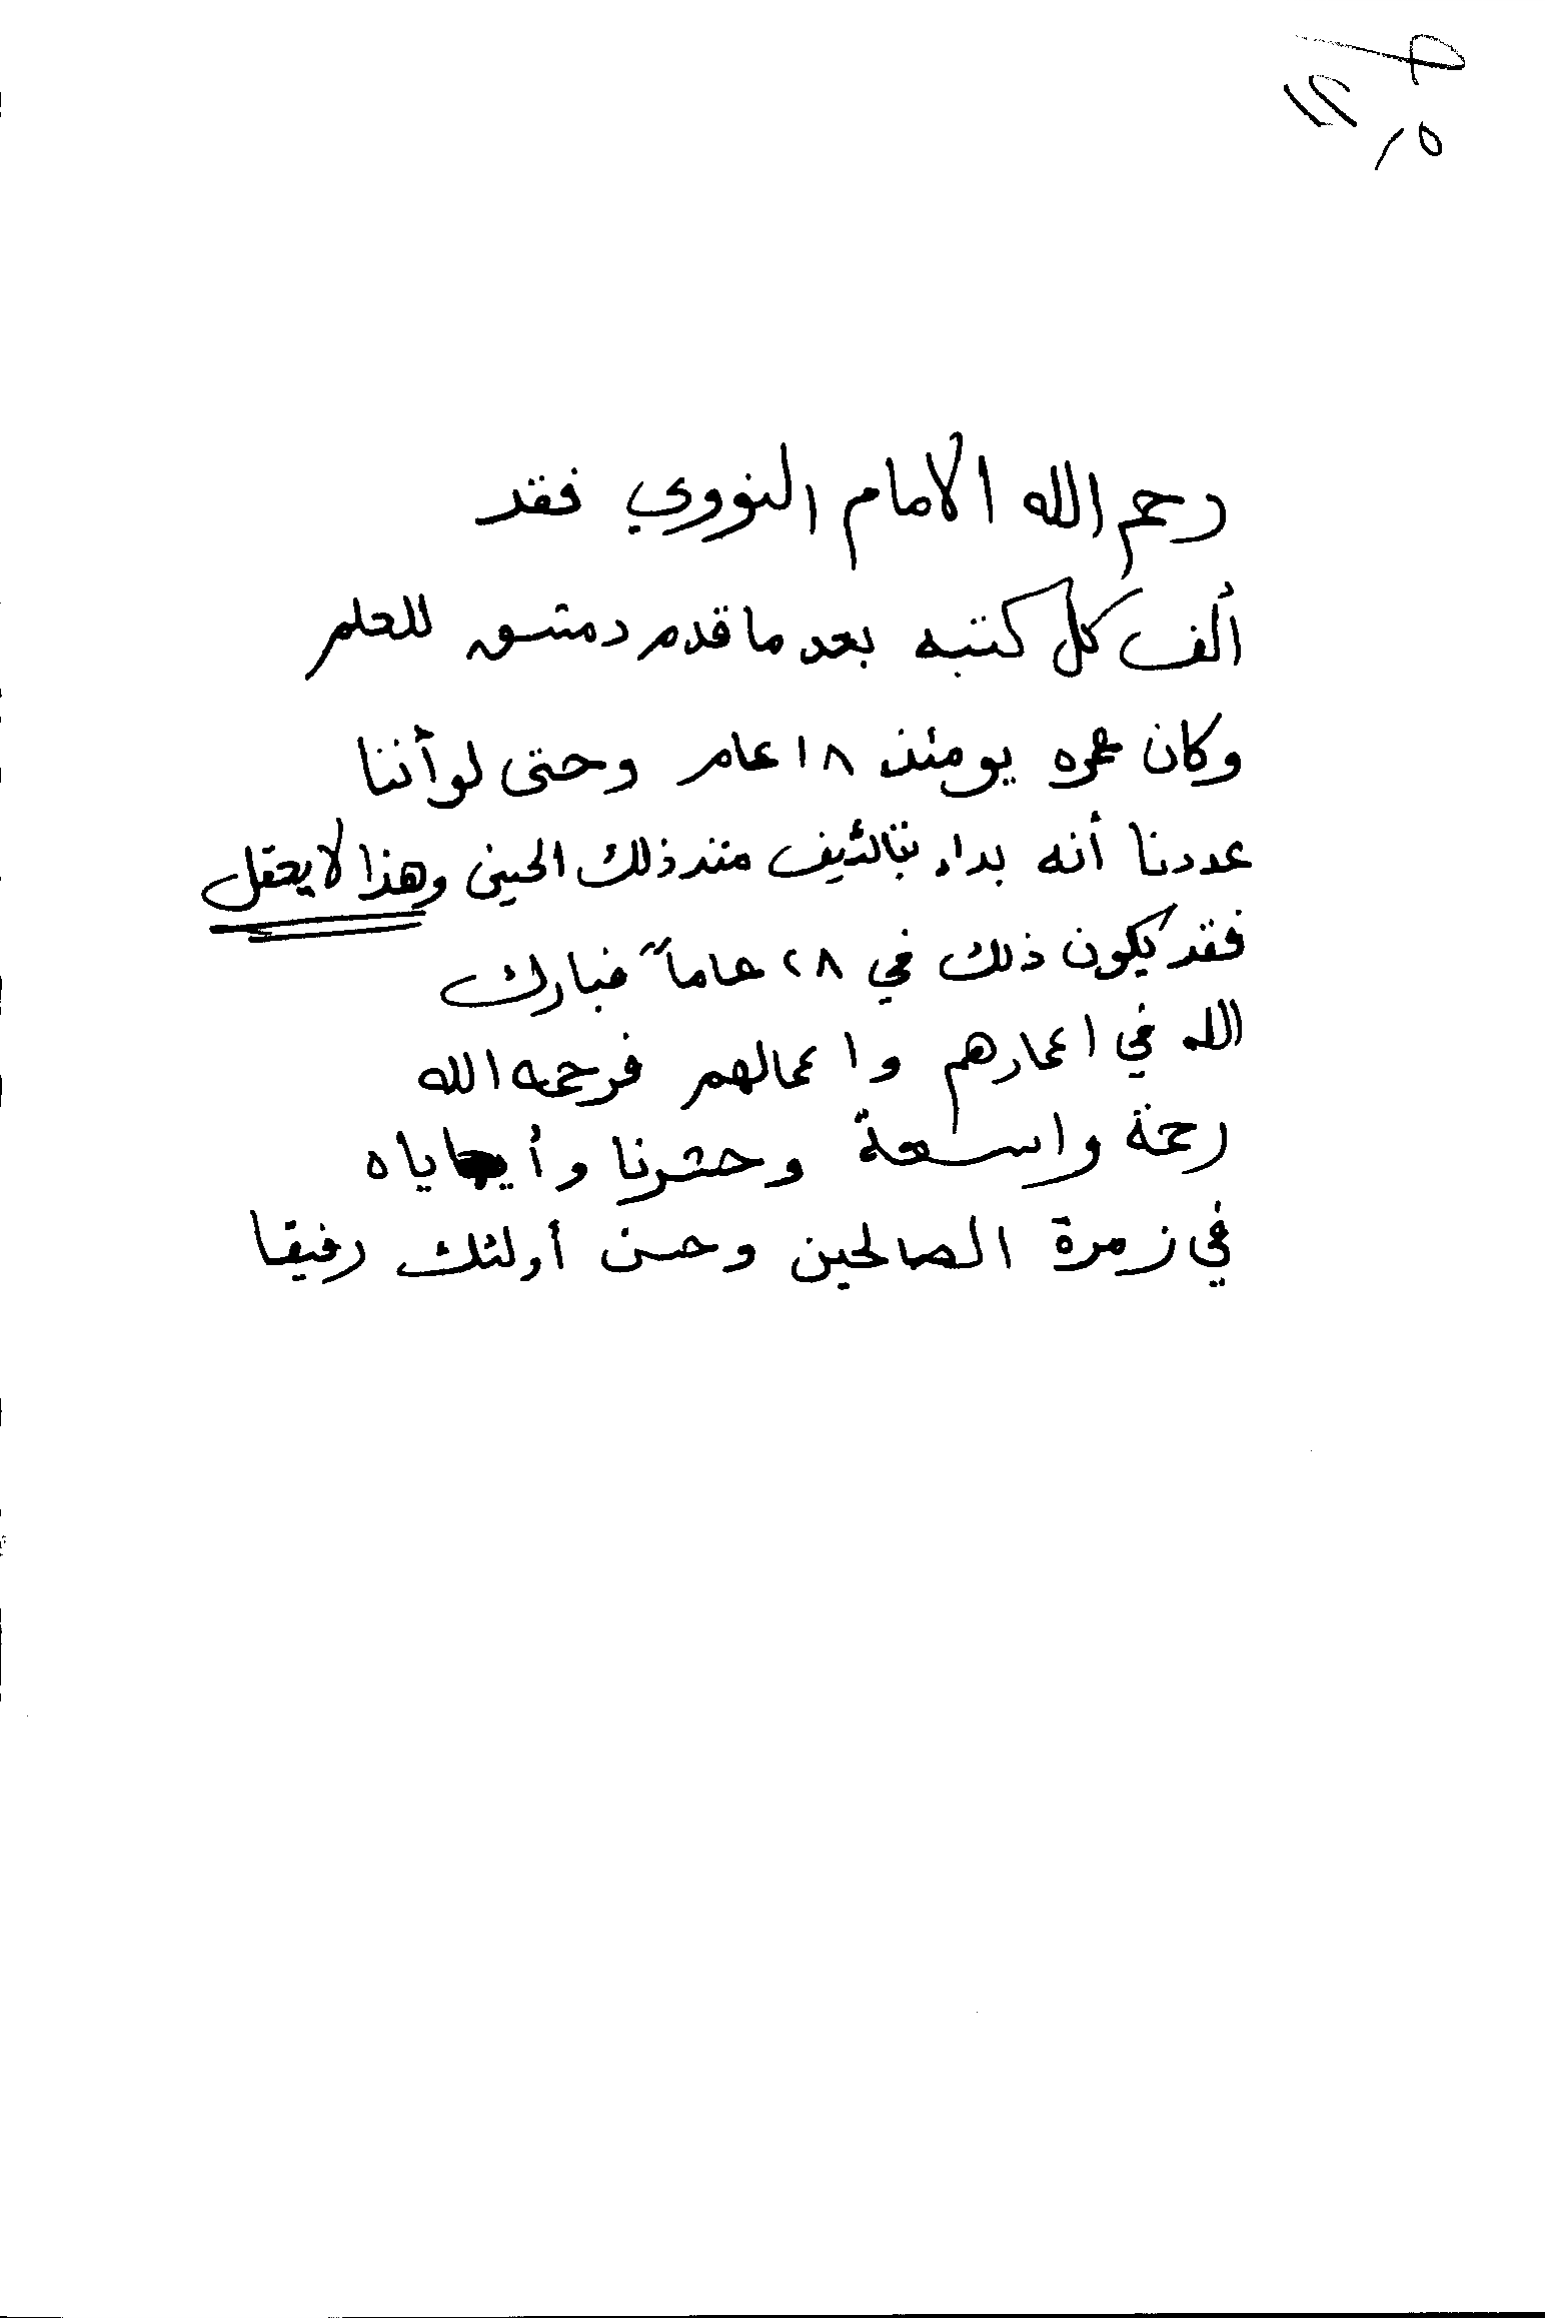 رحم الله الامام النووي فقد
ألف كل كتبه بعد ما قدم دمشق للعلم
وكان عمره يومئذ ١٨ عام وحتى لو أننا
عددنا أنه بداء بتالئيف منذ ذلك الحين وهذا لا يعقل
فقد يكون ذلك في ٢٨ عاماً فبارك
الله في اعمارهم واعمالهم فرحمه الله
رحمة واسعة وحشرنا وأياه
في زمرة الصالحين وحسن أولئك رفيقا